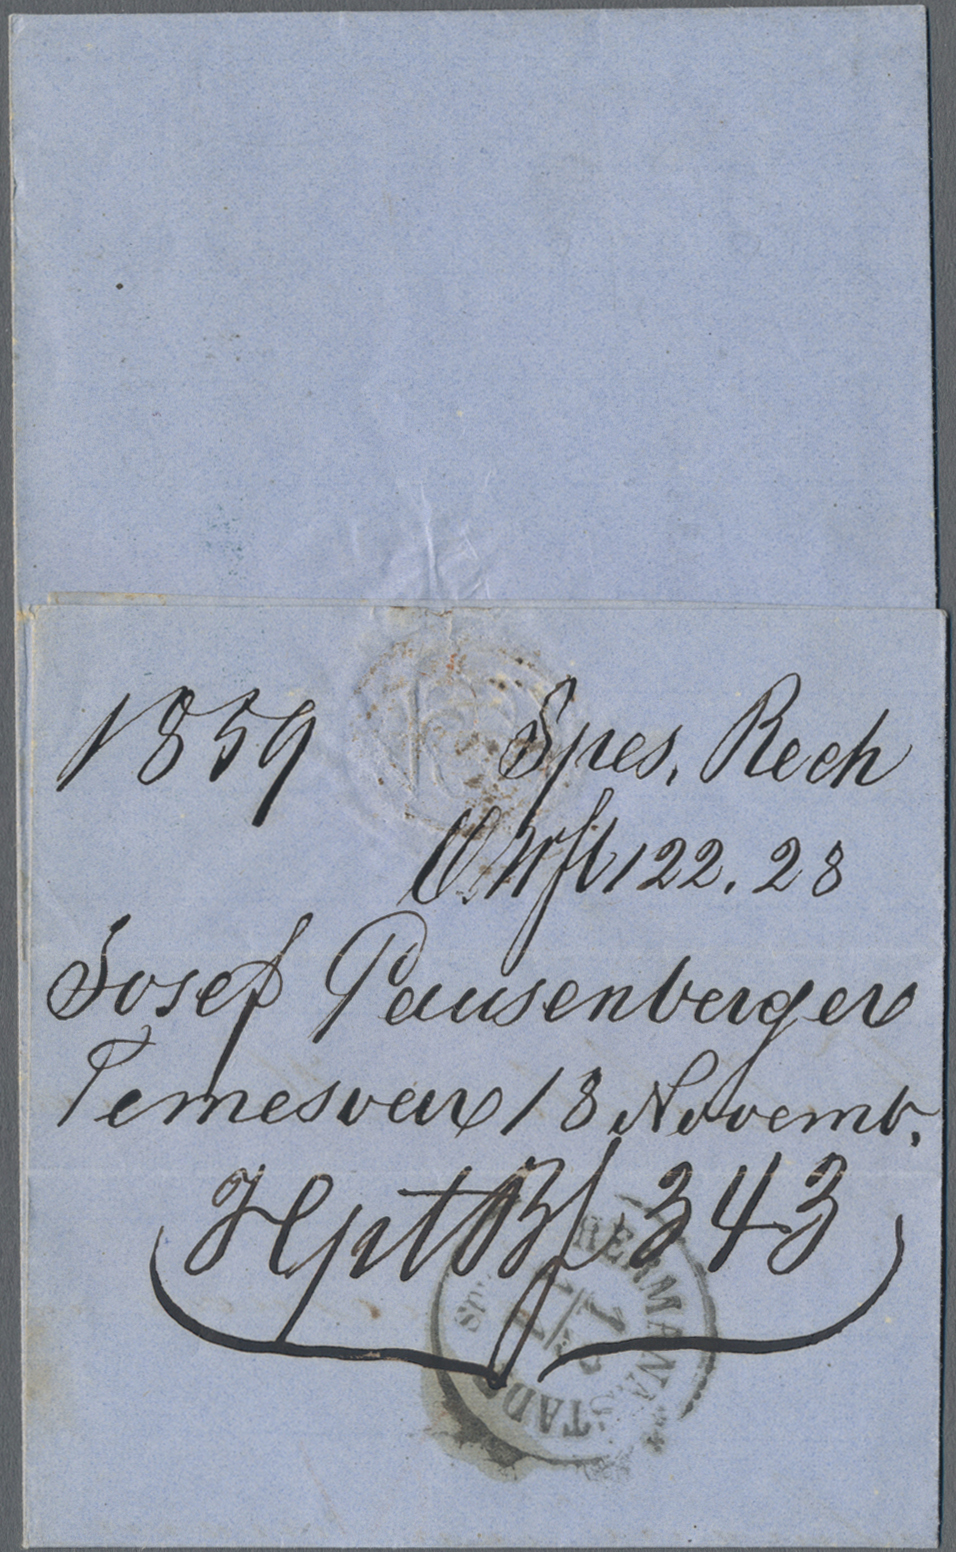 1859 Spes. Rech
122.28
Josef Pausenberger
Temesvar 18 Novemb.
Hpt Bf 343
HERMANNSTADT